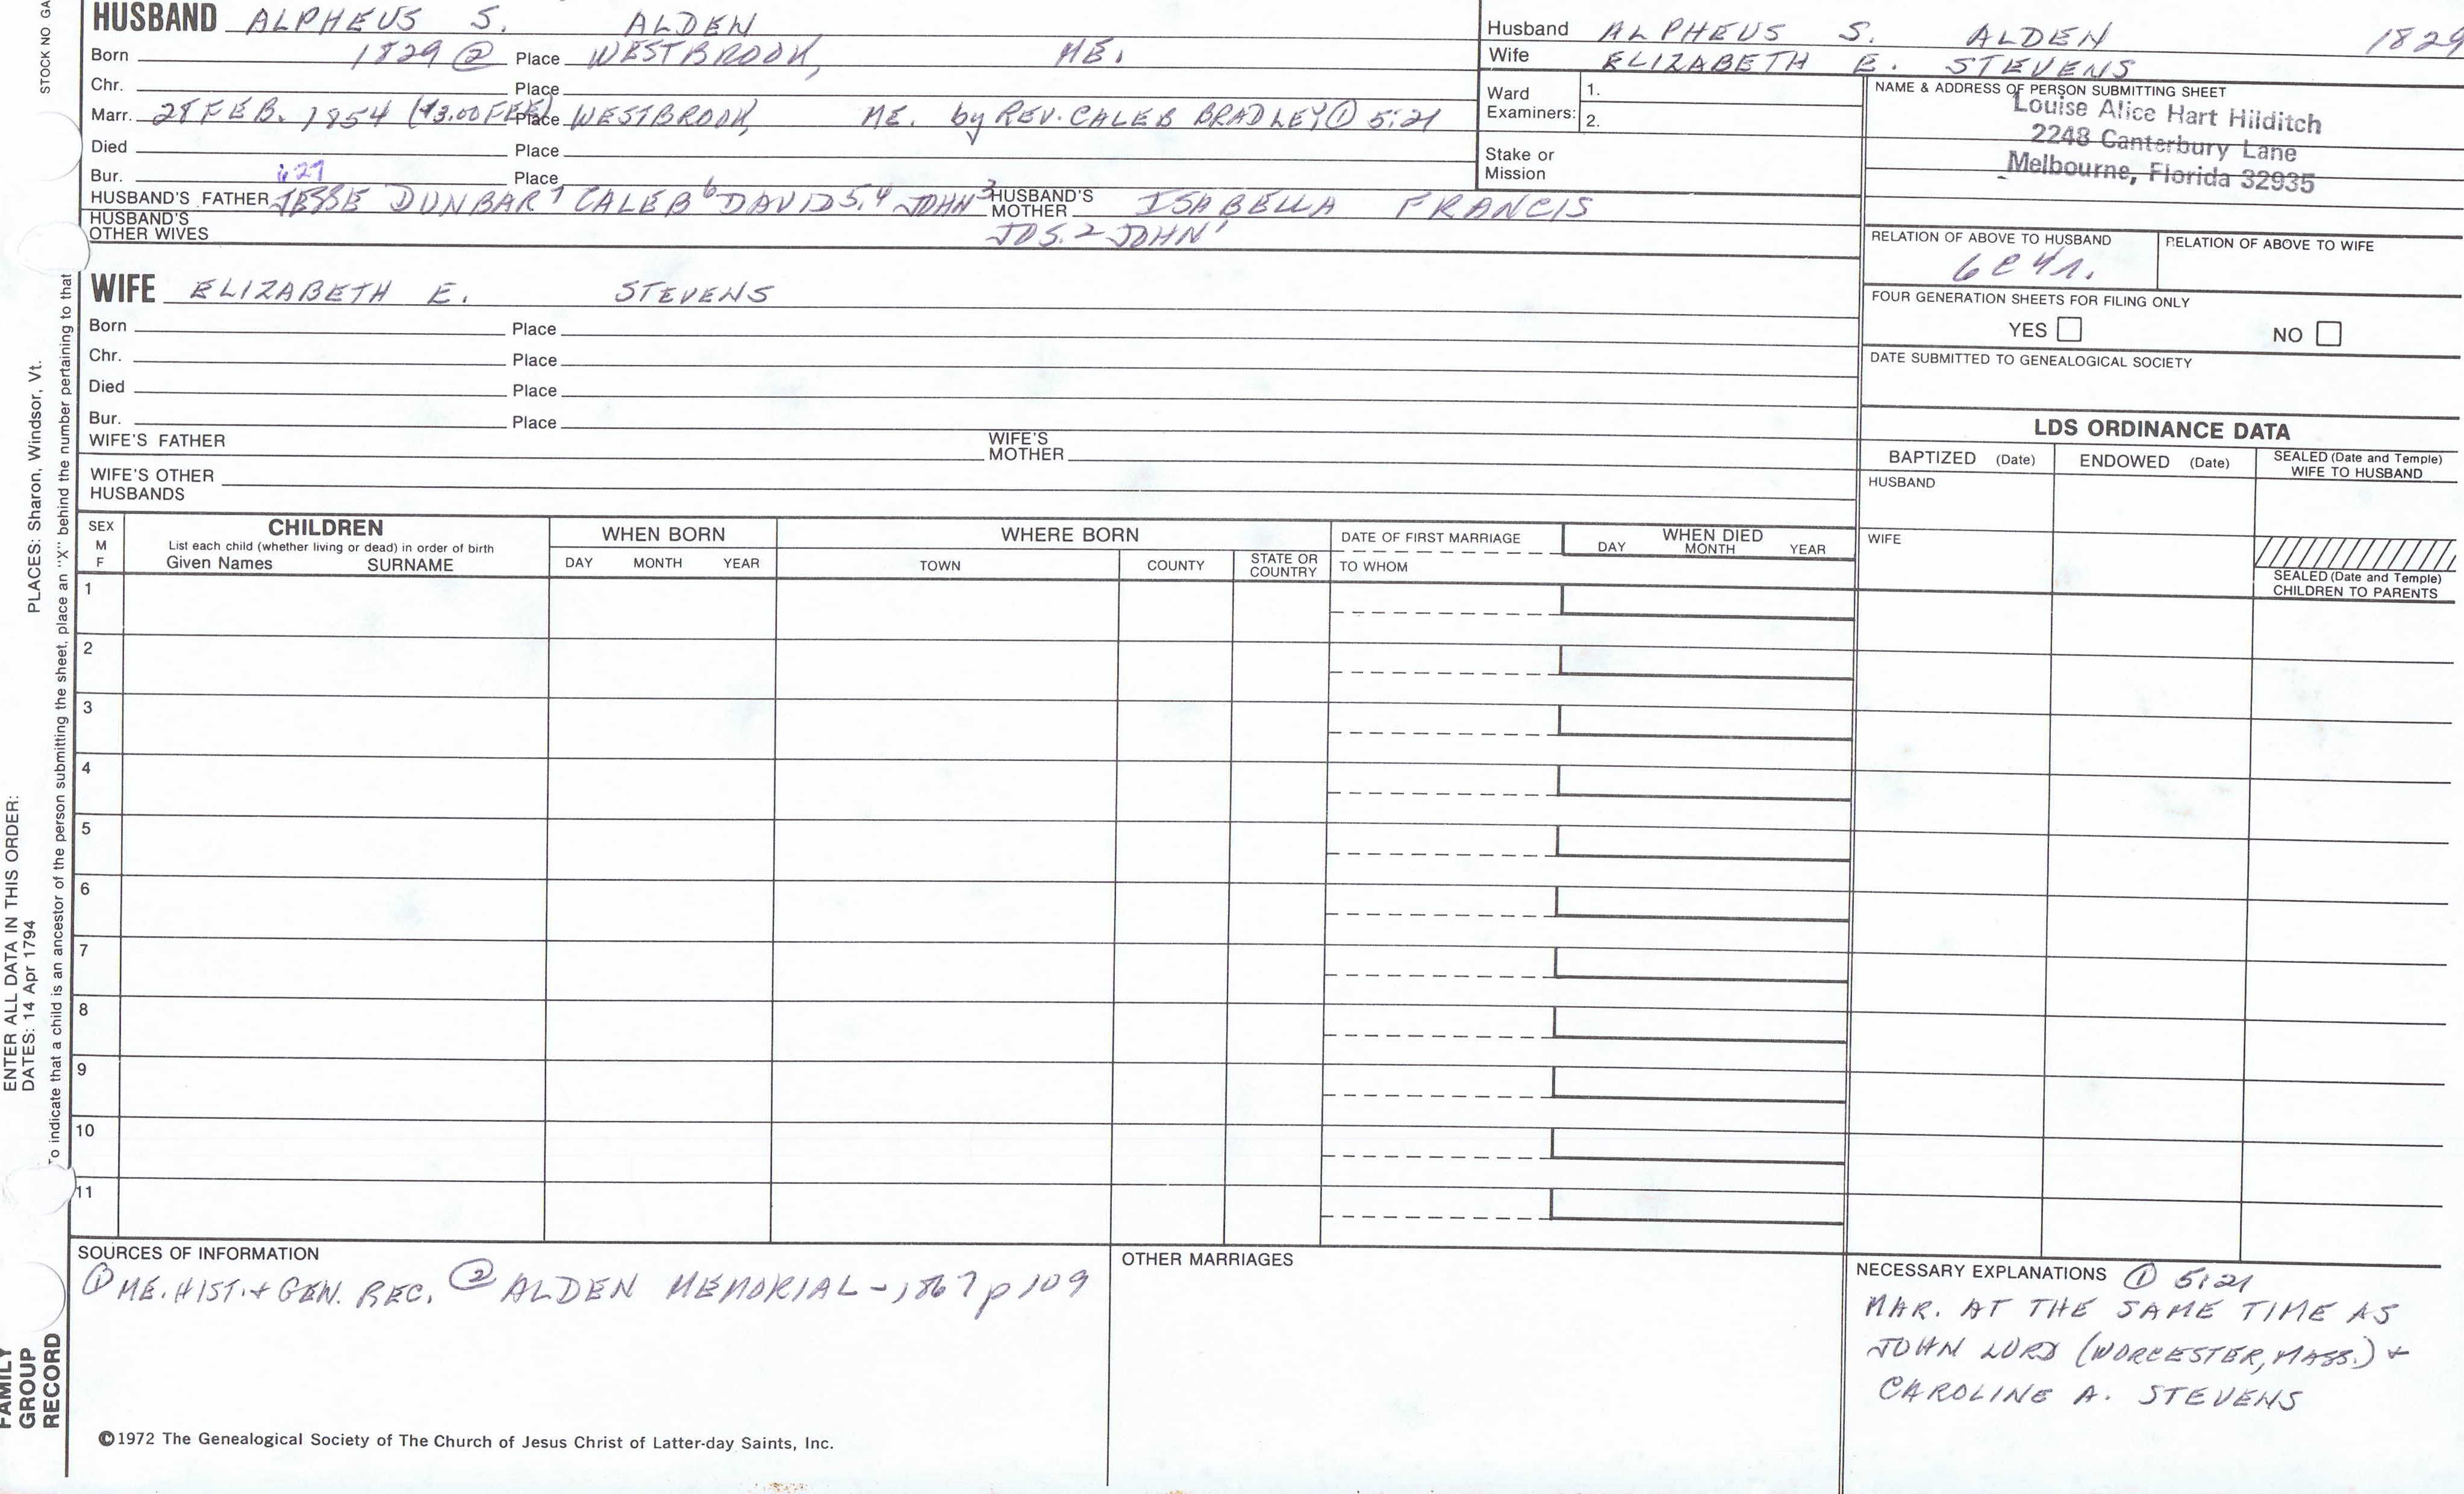 STOCK NO GA
HUSBAND ALPHEUS S. ALDEN
Born 1829 ② Place WESTBROOK, ME.
Chr. Place
Marr. 28 FEB. 1854 ($3.00 FEE) Place WESTBROOK, ME. by REV. CALEB BRADLEY ① 5:21
Died Place
Bur. Place
627
HUSBAND'S FATHER JESSE DUNBAR7 CALEB6 DAVID5,4 JOHN3 HUSBAND'S MOTHER ISABELLA FRANCIS
JOS.2 JOHN1
HUSBAND'S OTHER WIVES
Husband ALPHEUS S. ALDEN 1829
Wife ELIZABETH E. STEVENS
Ward Examiners: 1.
2.
Stake or Mission
NAME & ADDRESS OF PERSON SUBMITTING SHEET
Louise Alice Hart Hilditch
2248 Canterbury Lane
Melbourne, Florida 32935
RELATION OF ABOVE TO HUSBAND RELATION OF ABOVE TO WIFE
6C4r.
FOUR GENERATION SHEETS FOR FILING ONLY
YES NO
DATE SUBMITTED TO GENEALOGICAL SOCIETY
WIFE ELIZABETH E. STEVENS
Born Place
Chr. Place
Died Place
Bur. Place
WIFE'S FATHER WIFE'S MOTHER
WIFE'S OTHER HUSBANDS
LDS ORDINANCE DATA
BAPTIZED (Date) ENDOWED (Date) SEALED (Date and Temple) WIFE TO HUSBAND
HUSBAND
WIFE
SEALED (Date and Temple) CHILDREN TO PARENTS
SEX M F
CHILDREN
List each child (whether living or dead) in order of birth
Given Names SURNAME
WHEN BORN
DAY MONTH YEAR
WHERE BORN
TOWN COUNTY STATE OR COUNTRY
DATE OF FIRST MARRIAGE
TO WHOM
WHEN DIED
DAY MONTH YEAR
1
2
3
4
5
6
7
8
9
10
11
SOURCES OF INFORMATION
① ME. HIST. + GEN. REC. ② ALDEN MEMORIAL - 1867 p 109
OTHER MARRIAGES
NECESSARY EXPLANATIONS ① 5:21
MAR. AT THE SAME TIME AS
JOHN LORD (WORCESTER, MASS.) +
CAROLINE A. STEVENS
©1972 The Genealogical Society of The Church of Jesus Christ of Latter-day Saints, Inc.
FAMILY
GROUP
RECORD
ENTER ALL DATA IN THIS ORDER:
DATES: 14 Apr 1794 PLACES: Sharon, Windsor, Vt.
To indicate that a child is an ancestor of the person submitting the sheet, place an "X" behind the number pertaining to that